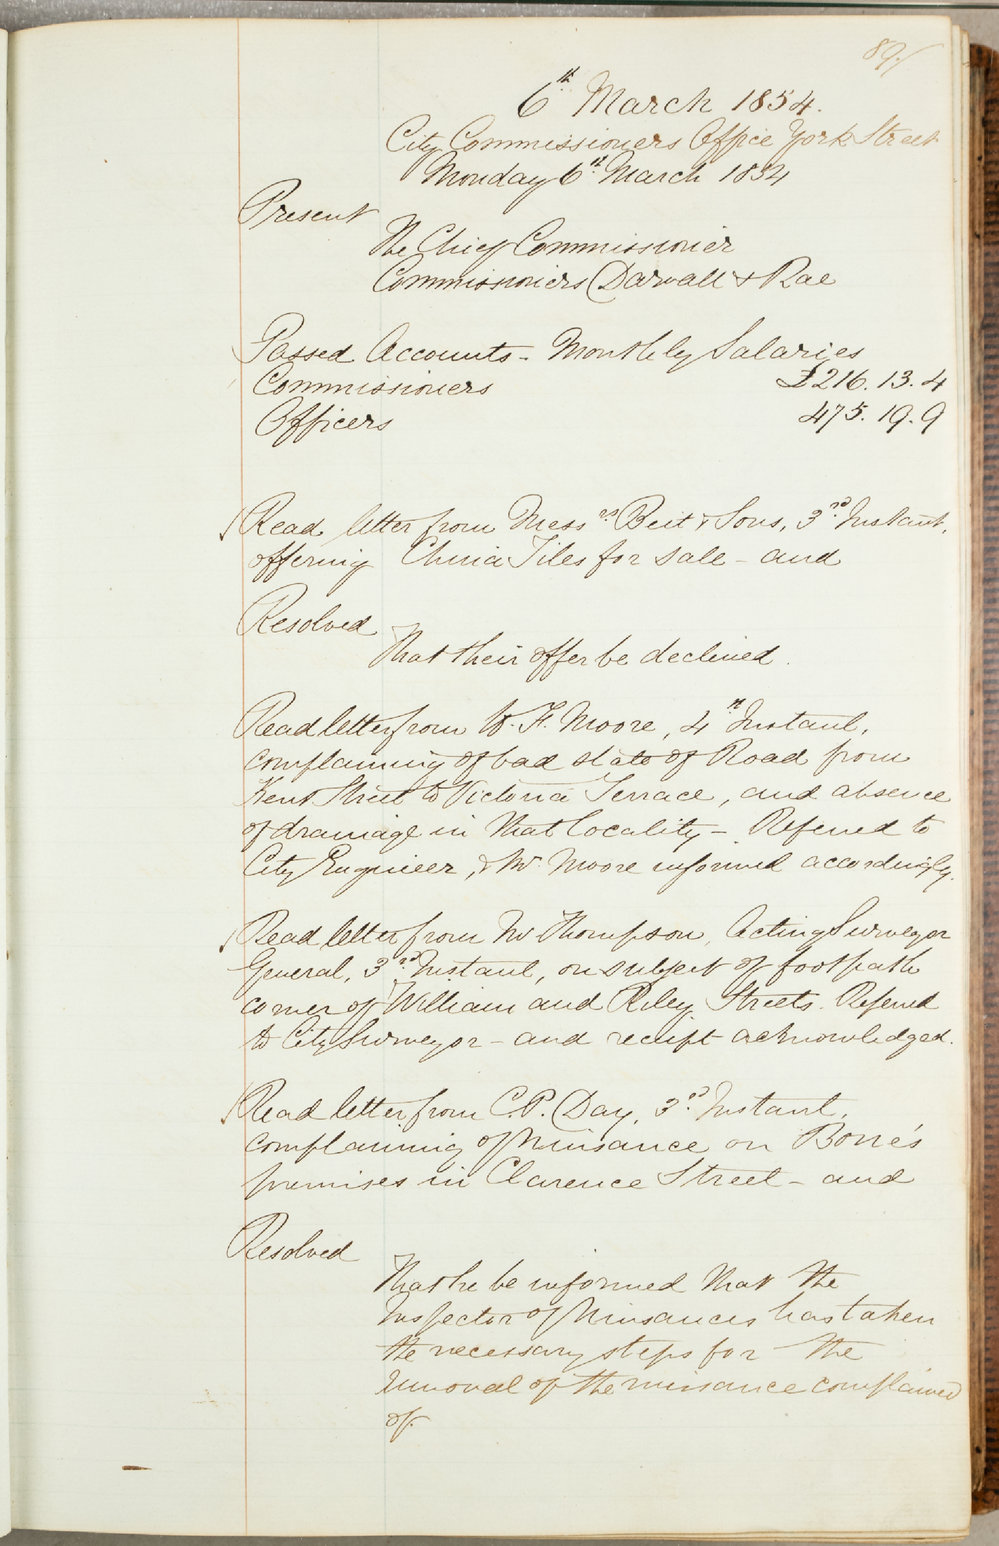 89./
6th March 1854.
City Commissioners Office York Street
Monday 6th March 1854
Present
The Chief Commissioner
Commissioners Darvall & Rae
Passed Accounts - Monthly Salaries
Commissioners £216. 13. 4
Officers 475. 19. 9
Read letter from Messrs Beit & Sons, 3rd Instant,
offering China Tiles for sale - and
Resolved
That their offer be declined.
Read letter from W. F. Moore, 4th Instant,
complaining of bad state of Road from
Kent Street to Victoria Terrace, and absence
of drainage in that locality - Referred to
City Engineer, & Mr Moore informed accordingly.
Read letter from Mr Thompson, Acting Surveyor
General, 3rd Instant, on subject of footpath
corner of William and Riley Streets. Referred
to City Surveyor - and receipt acknowledged.
Read letter from C. P. Day, 3rd Instant,
complaining of Nuisance on Bone's
premises in Clarence Street - and
Resolved
That he be informed that the
Inspector of Nuisances has taken
the necessary steps for the
removal of the nuisance complained
of.